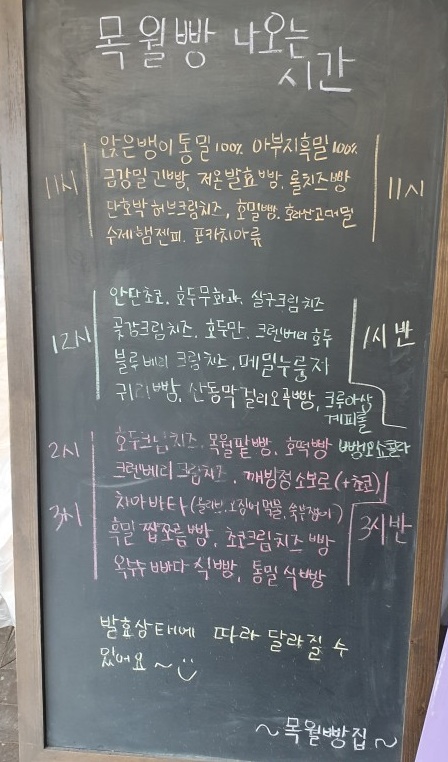 목월빵 나오는
시간
11시
앉은뱅이통밀100% 아부지흑밀100%
금강밀긴빵, 저온발효빵, 롤치즈빵
단호박허브크림치즈, 호밀빵, 호라산고대밀
수제햄젠피, 포카치아류
11시
12시
안단초코, 호두무화과, 살구크림치즈
곶감크림치즈, 호두만, 크랜베리호두
블루베리 크림치즈, 메밀누룽지
귀리빵, 산동막걸리오곡빵, 크루아상
계피롤
빵오쇼콜라
1시반
2시
호두크림치즈, 목월팥빵, 호떡빵
크랜베리크림치즈, 깨빙점소보로(+초코)
3시
차아바타 (올리브, 오징어먹물, 쑥부쟁이)
흑밀 짭쪼름빵, 초코크림치즈 빵
옥수수빠다 식빵, 통밀식빵
3시반
발효상태에 따라 달라질 수
있어요~
~목월빵집~